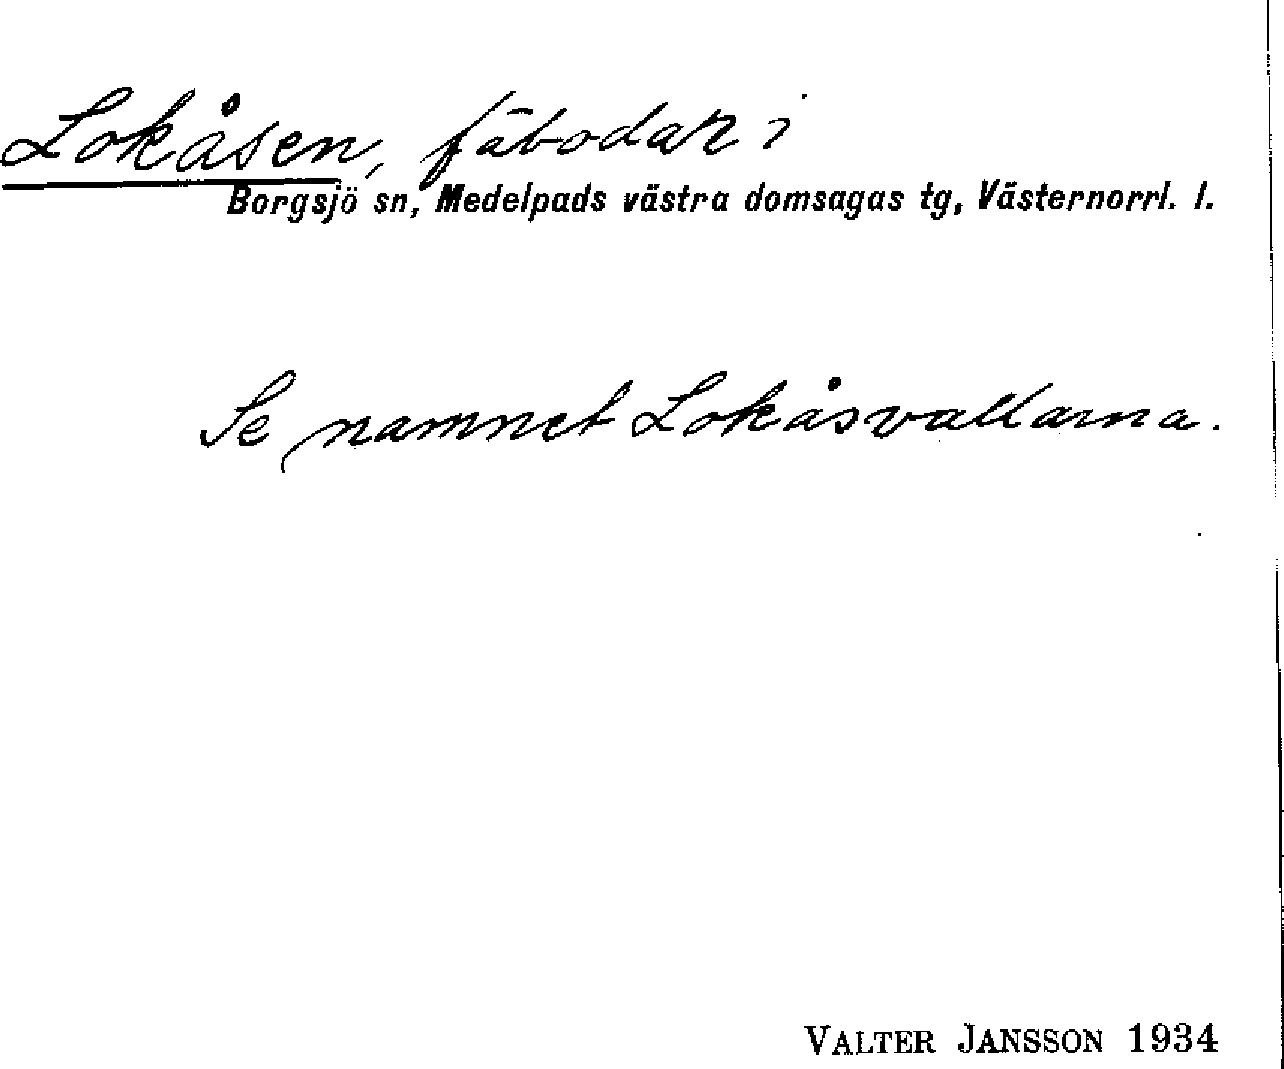 Lokåsen, fäbodar i
Borgsjö sn, Medelpads västra domsagas tg, Västernorrl. l.
Se namnet Lokåsvallarna.
VALTER JANSSON 1934